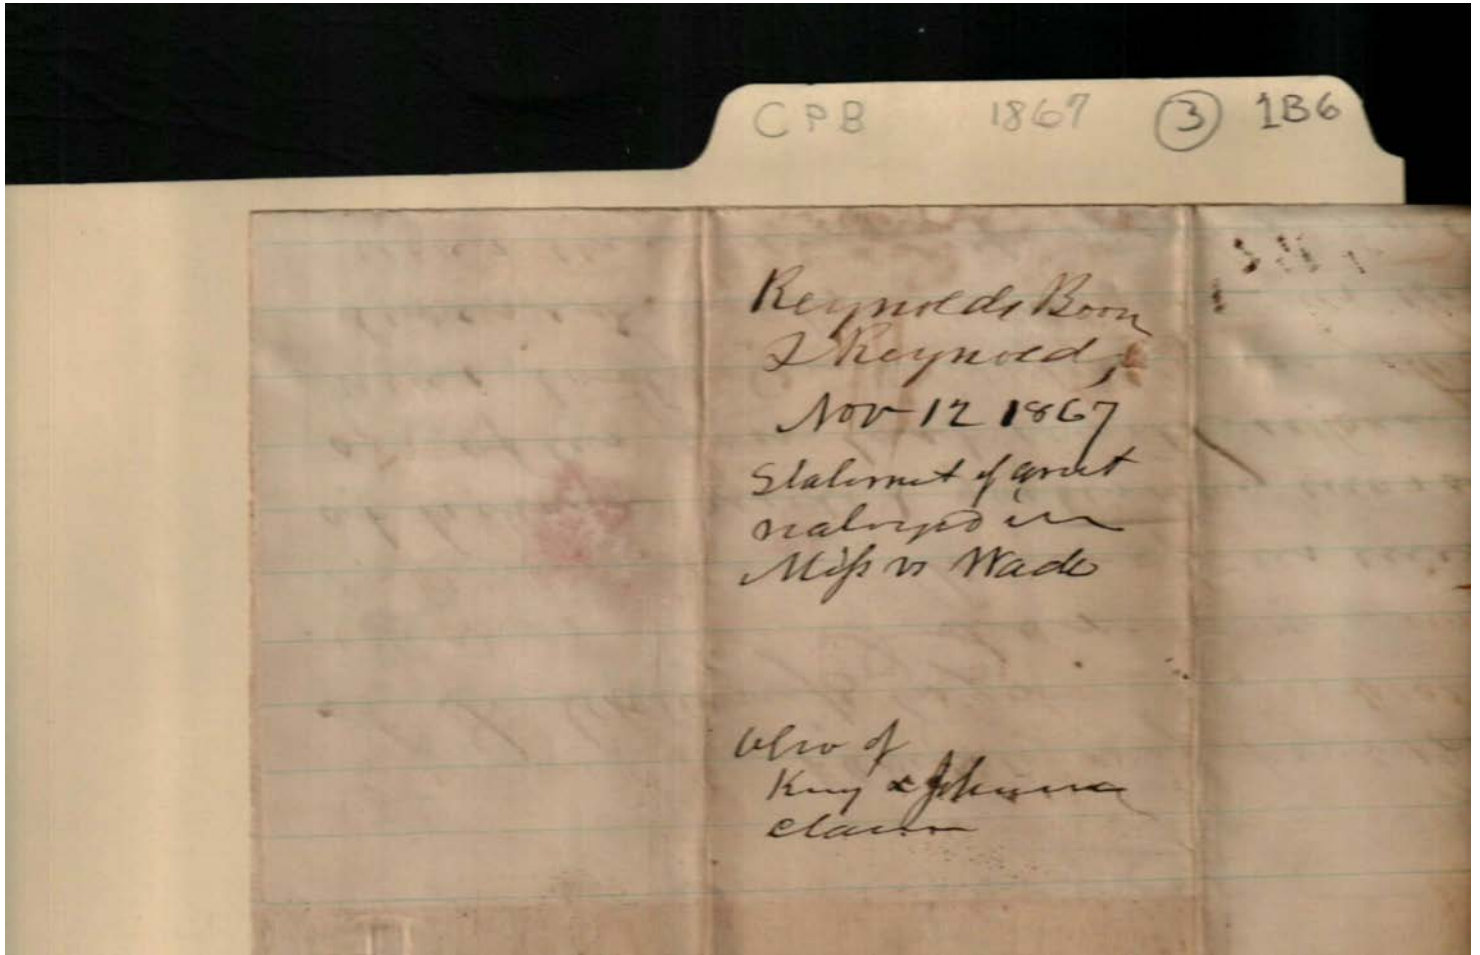 CPB 1867 3 1B6
Reynolds Boon
& Reynolds
Nov 12 1867
Statement of amt
realized in
Miss vs Wade
Also of
King & Johnson
claim